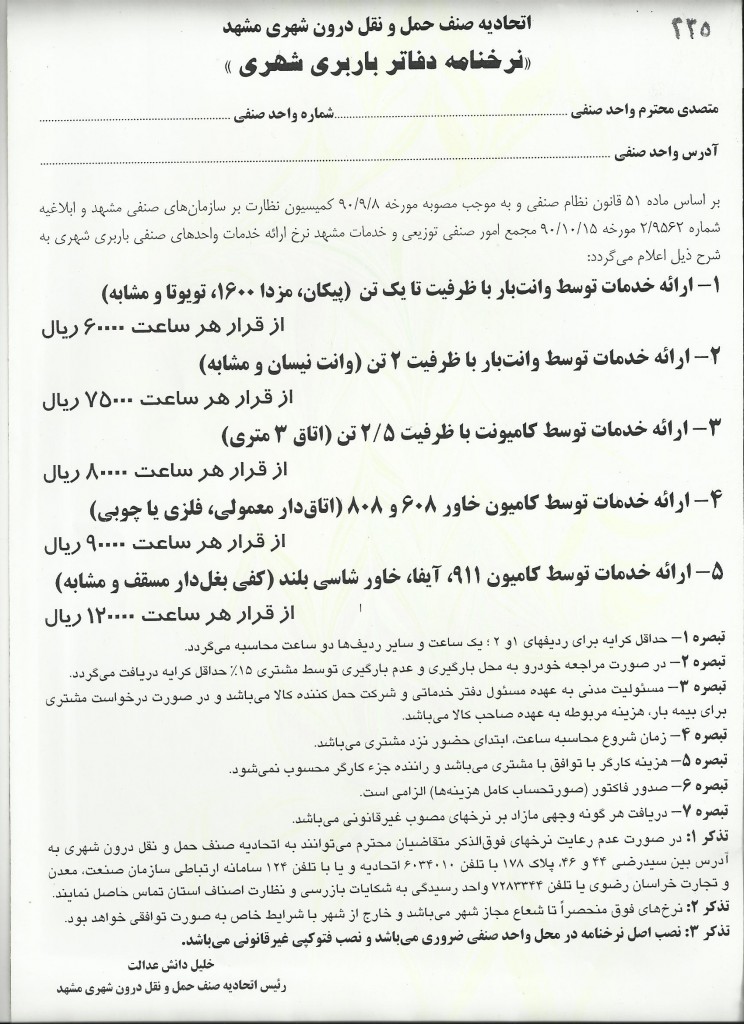 ۴۳۵
اتحادیه صنف حمل و نقل درون شهری مشهد
«نرخنامه دفاتر باربری شهری »
متصدی محترم واحد صنفی ........................ شماره واحد صنفی ........................
آدرس واحد صنفی ........................
بر اساس ماده ۵۱ قانون نظام صنفی و به موجب مصوبه مورخه ۹۰/۹/۸ کمیسیون نظارت بر سازمان‌های صنفی مشهد و ابلاغیه
شماره ۲/۹۵۶۲ مورخه ۹۰/۱۰/۱۵ مجمع امور صنفی توزیعی و خدمات مشهد نرخ ارائه خدمات واحدهای صنفی باربری شهری به
شرح ذیل اعلام می‌گردد:
۱- ارائه خدمات توسط وانت‌بار با ظرفیت تا یک تن (پیکان، مزدا ۱۶۰۰، تویوتا و مشابه)
از قرار هر ساعت ۶۰۰۰۰ ریال
۲- ارائه خدمات توسط وانت‌بار با ظرفیت ۲ تن (وانت نیسان و مشابه)
از قرار هر ساعت ۷۵۰۰۰ ریال
۳- ارائه خدمات توسط کامیونت با ظرفیت ۲/۵ تن (اتاق ۳ متری)
از قرار هر ساعت ۸۰۰۰۰ ریال
۴- ارائه خدمات توسط کامیون خاور ۶۰۸ و ۸۰۸ (اتاق‌دار معمولی، فلزی یا چوبی)
از قرار هر ساعت ۹۰۰۰۰ ریال
۵- ارائه خدمات توسط کامیون ۹۱۱، آیفا، خاور شاسی بلند (کفی بغل‌دار مسقف و مشابه)
از قرار هر ساعت ۱۲۰۰۰۰ ریال
تبصره ۱- حداقل کرایه برای ردیفهای ۱و ۲ ؛ یک ساعت و سایر ردیف‌ها دو ساعت محاسبه می‌گردد.
تبصره ۲- در صورت مراجعه خودرو به محل بارگیری و عدم بارگیری توسط مشتری ۱۵٪ حداقل کرایه دریافت می‌گردد.
تبصره ۳- مسئولیت مدنی به عهده مسئول دفتر خدماتی و شرکت حمل کننده کالا می‌باشد و در صورت درخواست مشتری
برای بیمه بار، هزینه مربوطه به عهده صاحب کالا می‌باشد.
تبصره ۴- زمان شروع محاسبه ساعت، ابتدای حضور نزد مشتری می‌باشد.
تبصره ۵- هزینه کارگر با توافق با مشتری می‌باشد و راننده جزء کارگر محسوب نمی‌شود.
تبصره ۶- صدور فاکتور (صورتحساب کامل هزینه‌ها) الزامی است.
تبصره ۷- دریافت هر گونه وجهی مازاد بر نرخهای مصوب غیرقانونی می‌باشد.
تذکر ۱: در صورت عدم رعایت نرخهای فوق‌الذکر متقاضیان محترم می‌توانند به اتحادیه صنف حمل و نقل درون شهری به
آدرس بین سیدرضی ۴۴ و ۴۶، پلاک ۱۷۸ با تلفن ۶۰۳۴۰۱۰ اتحادیه و یا با تلفن ۱۲۴ سامانه ارتباطی سازمان صنعت، معدن
و تجارت خراسان رضوی یا تلفن ۷۲۸۳۳۴۴ واحد رسیدگی به شکایات بازرسی و نظارت اصناف استان تماس حاصل نمایند.
تذکر ۲: نرخ‌های فوق منحصراً تا شعاع مجاز شهر می‌باشد و خارج از شهر با شرایط خاص به صورت توافقی خواهد بود.
تذکر ۳: نصب اصل نرخنامه در محل واحد صنفی ضروری می‌باشد و نصب فتوکپی غیرقانونی می‌باشد.
خلیل دانش عدالت
رئیس اتحادیه صنف حمل و نقل درون شهری مشهد